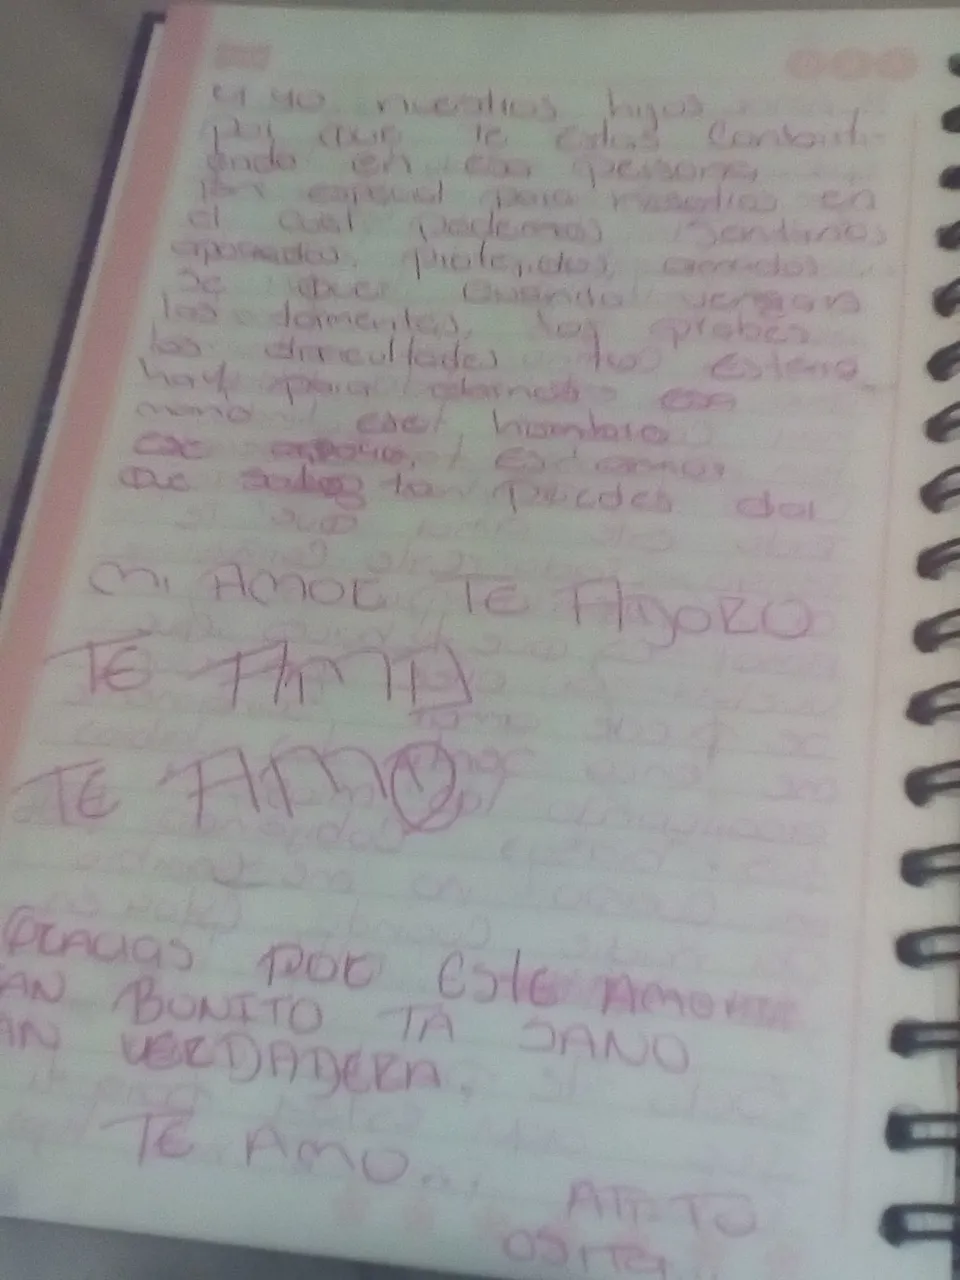 y yo nuestros hijos
por que te estas convirti
endo en esa persona
tan especial para nosotros en
el cual podemos sentirnos
apoyados, protegidos, amados
se que cuando vengan
las tormentas, las pruebas
las dificultades tu estaras
hay para darnos esa
mano, ese hombro
ese apoyo, y ese amor
que solo tu puedes dar
mi AMOR TE ADORO
TE AMO
TE AMO
GRACIAS POR ESTE AMOR
AN BONITO TA SANO
AN VERDADERA.
TE AMO...
ATT TU
OSITA